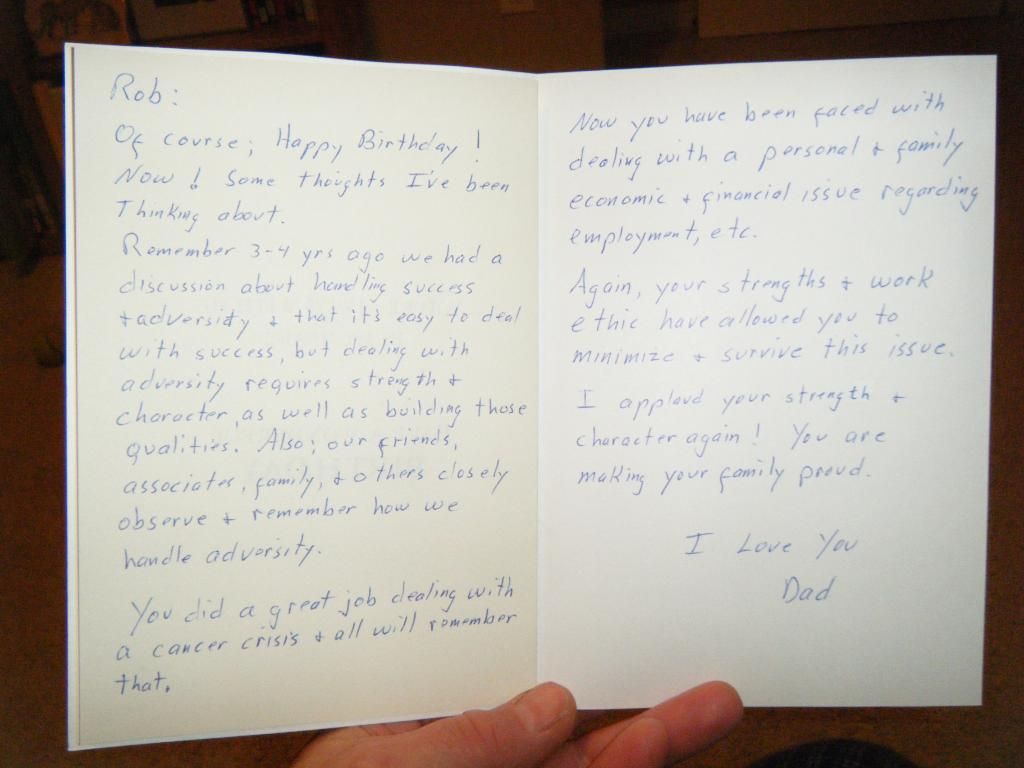 Rob:
Of course; Happy Birthday!
Now! Some thoughts I've been
Thinking about.
Remember 3-4 yrs ago we had a
discussion about handling success
+ adversity + that it's easy to deal
with success, but dealing with
adversity requires strength +
character, as well as building those
qualities. Also; our friends,
associates, family, + others closely
observe + remember how we
handle adversity.
You did a great job dealing with
a cancer crisis + all will remember
that.
Now you have been faced with
dealing with a personal + family
economic + financial issue regarding
employment, etc.
Again, your strengths + work
ethic have allowed you to
minimize + survive this issue.
I applaud your strength +
character again! You are
making your family proud.
I Love You
Dad